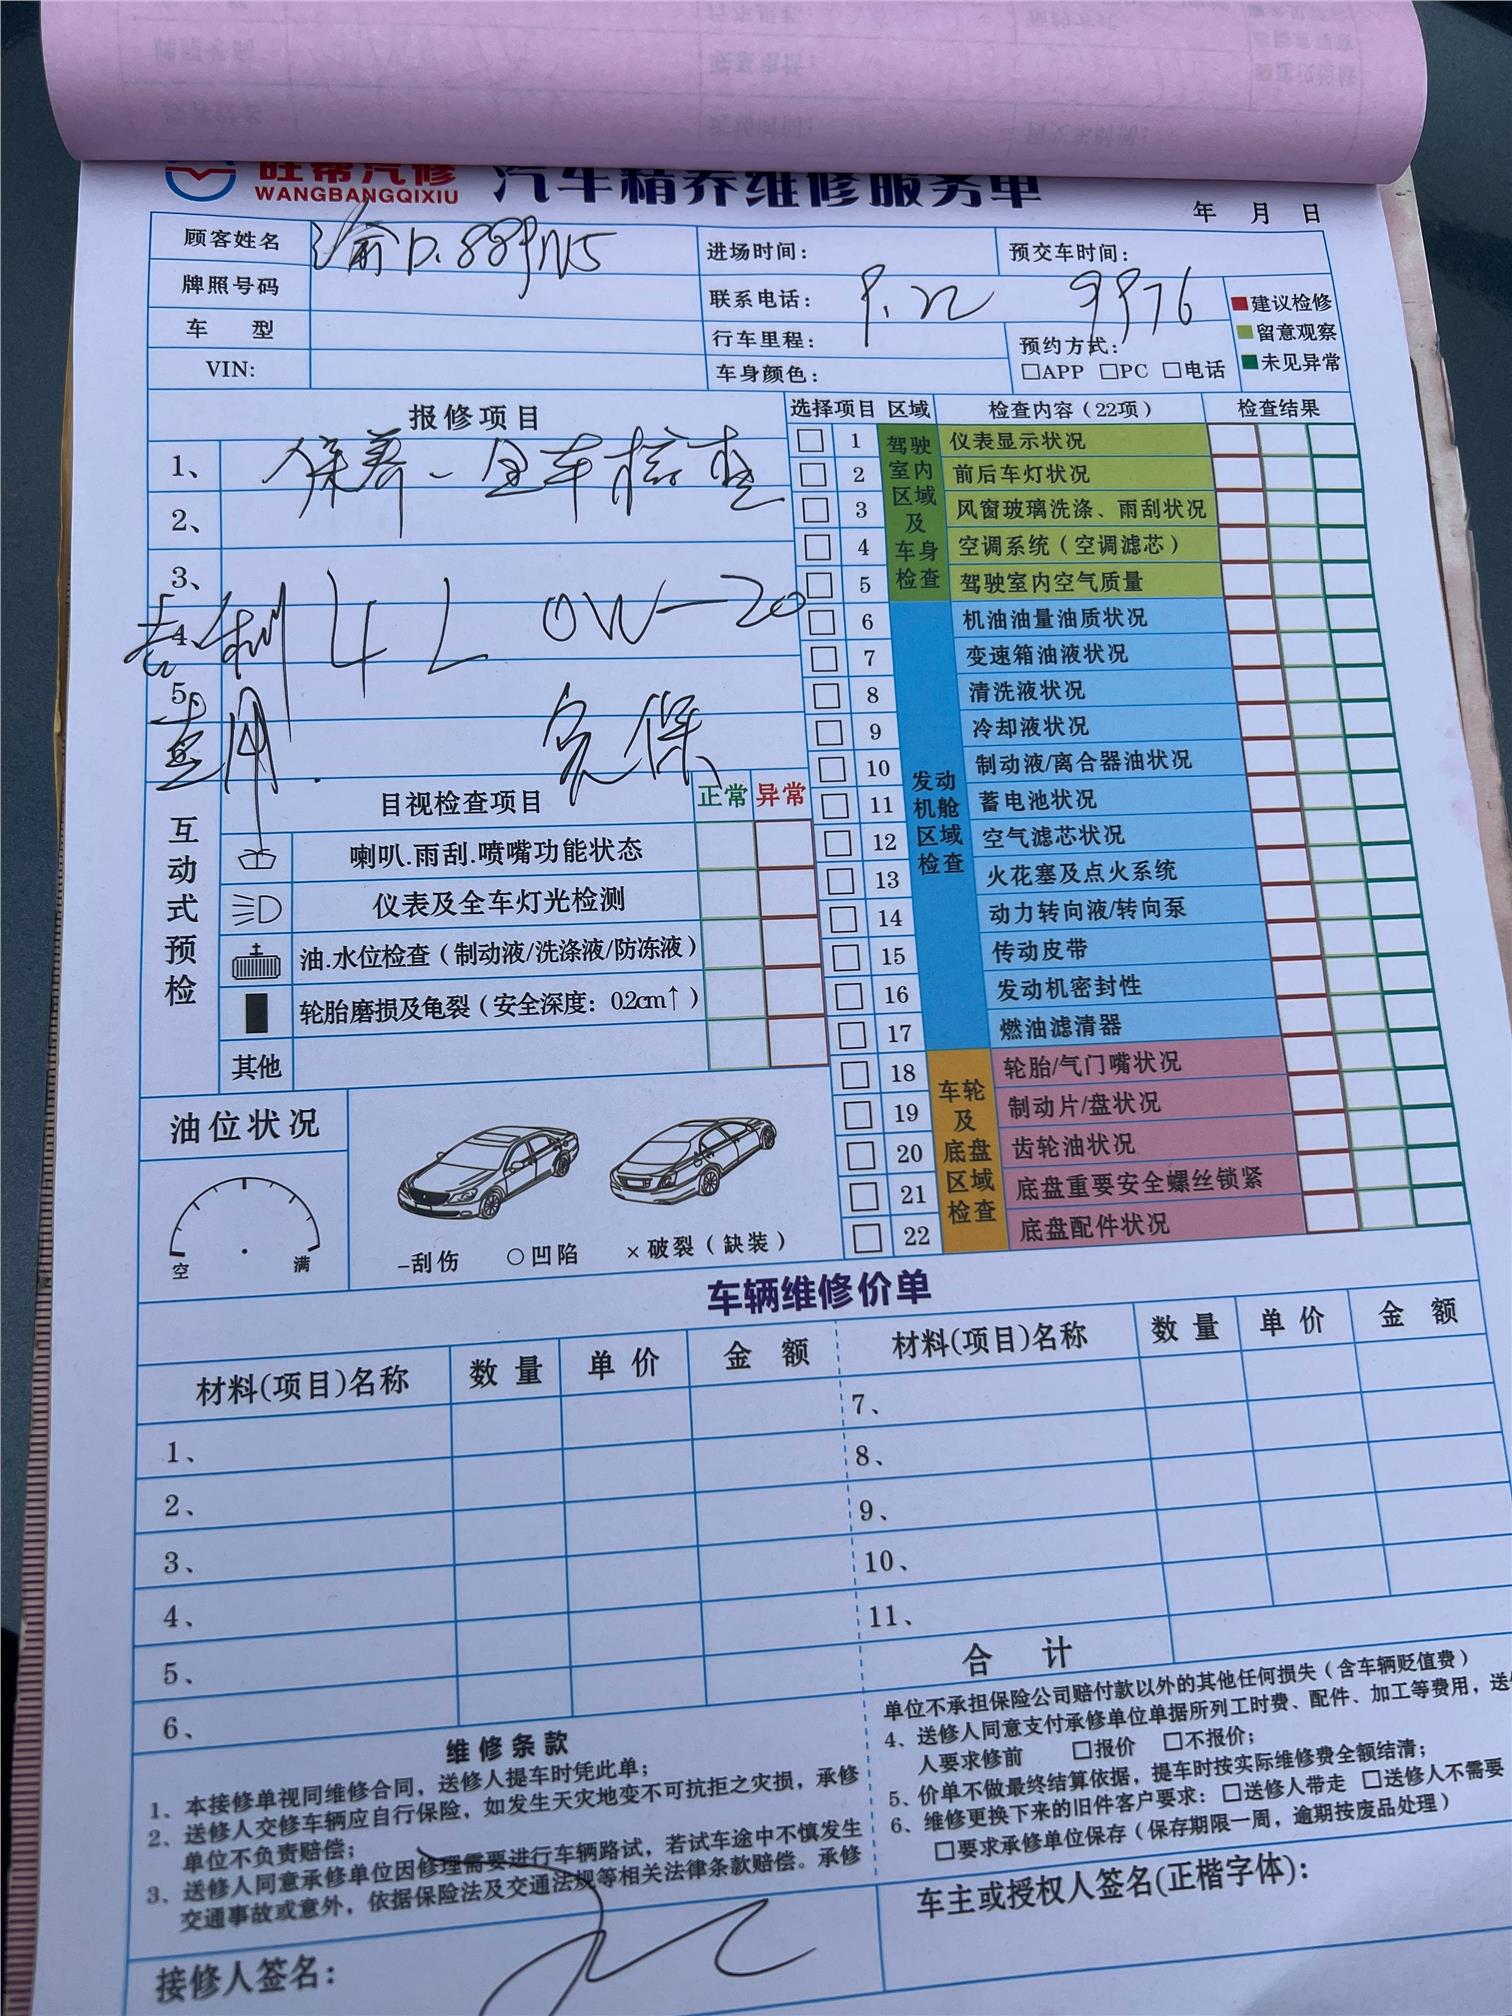 旺帮汽修
WANGBANGQIXIU
汽车精养维修服务单
年 月 日
顾客姓名 渝D.889N5 进场时间: 预交车时间:
牌照号码 联系电话: 9.22 9976
车 型 行车里程: 预约方式:
□APP □PC □电话
VIN: 车身颜色:
建议检修
留意观察
未见异常
报修项目
1、 保养、全车检查
2、
3、
4 4L 0W-20
5、 专用. 免保
6
选择项目 区域 检查内容(22项) 检查结果
驾驶室内区域及车身检查
1 仪表显示状况
2 前后车灯状况
3 风窗玻璃洗涤、雨刮状况
4 空调系统(空调滤芯)
5 驾驶室内空气质量
发动机舱区域检查
6 机油油量油质状况
7 变速箱油液状况
8 清洗液状况
9 冷却液状况
10 制动液/离合器油状况
11 蓄电池状况
12 空气滤芯状况
13 火花塞及点火系统
14 动力转向液/转向泵
15 传动皮带
16 发动机密封性
17 燃油滤清器
车轮及底盘区域检查
18 轮胎/气门嘴状况
19 制动片/盘状况
20 齿轮油状况
21 底盘重要安全螺丝锁紧
22 底盘配件状况
互动式预检
目视检查项目 正常 异常
喇叭.雨刮.喷嘴功能状态
仪表及全车灯光检测
油.水位检查(制动液/洗涤液/防冻液)
轮胎磨损及龟裂(安全深度: 0.2cm↑)
其他
油位状况
空 满
-刮伤 ○凹陷 ×破裂(缺装)
车辆维修价单
材料(项目)名称 数量 单价 金额 材料(项目)名称 数量 单价 金额
1、 7、
2、 8、
3、 9、
4、 10、
5、 11、
6、 合 计
维修条款
1、本接修单视同维修合同,送修人提车时凭此单;
2、送修人交修车辆应自行保险,如发生天灾地变不可抗拒之灾损,承修
单位不负责赔偿;
3、送修人同意承修单位因修理需要进行车辆路试,若试车途中不慎发生
交通事故或意外,依据保险法及交通法规等相关法律条款赔偿。承修
单位不承担保险公司赔付款以外的其他任何损失(含车辆贬值费)
4、送修人同意支付承修单位单据所列工时费、配件、加工等费用,送
人要求修前 □报价 □不报价;
5、价单不做最终结算依据,提车时按实际维修费全额结清;
6、维修更换下来的旧件客户要求: □送修人带走 □送修人不需要
□要求承修单位保存(保存期限一周,逾期按废品处理)
接修人签名:
车主或授权人签名(正楷字体):